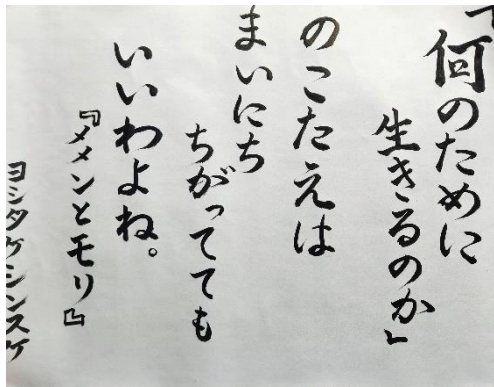 「何のために
生きるのか」
のこたえは
まいにち
ちがってても
いいわよね。
『メメンとモリ』
ヨシタケシンスケ